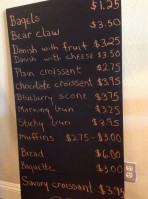 Bagels $1.25
Bear claw $3.50
Danish with fruit $3.25
Danish with cheese $3.50
Plain croissant $2.75
chocolate croissant $3.95
Blueberry scone $3.75
Morning bun $3.25
Sticky bun $3.95
muffins $2.75-$3.00
Bread $6.00
Baguette $3.00
Savory croissant $3.95